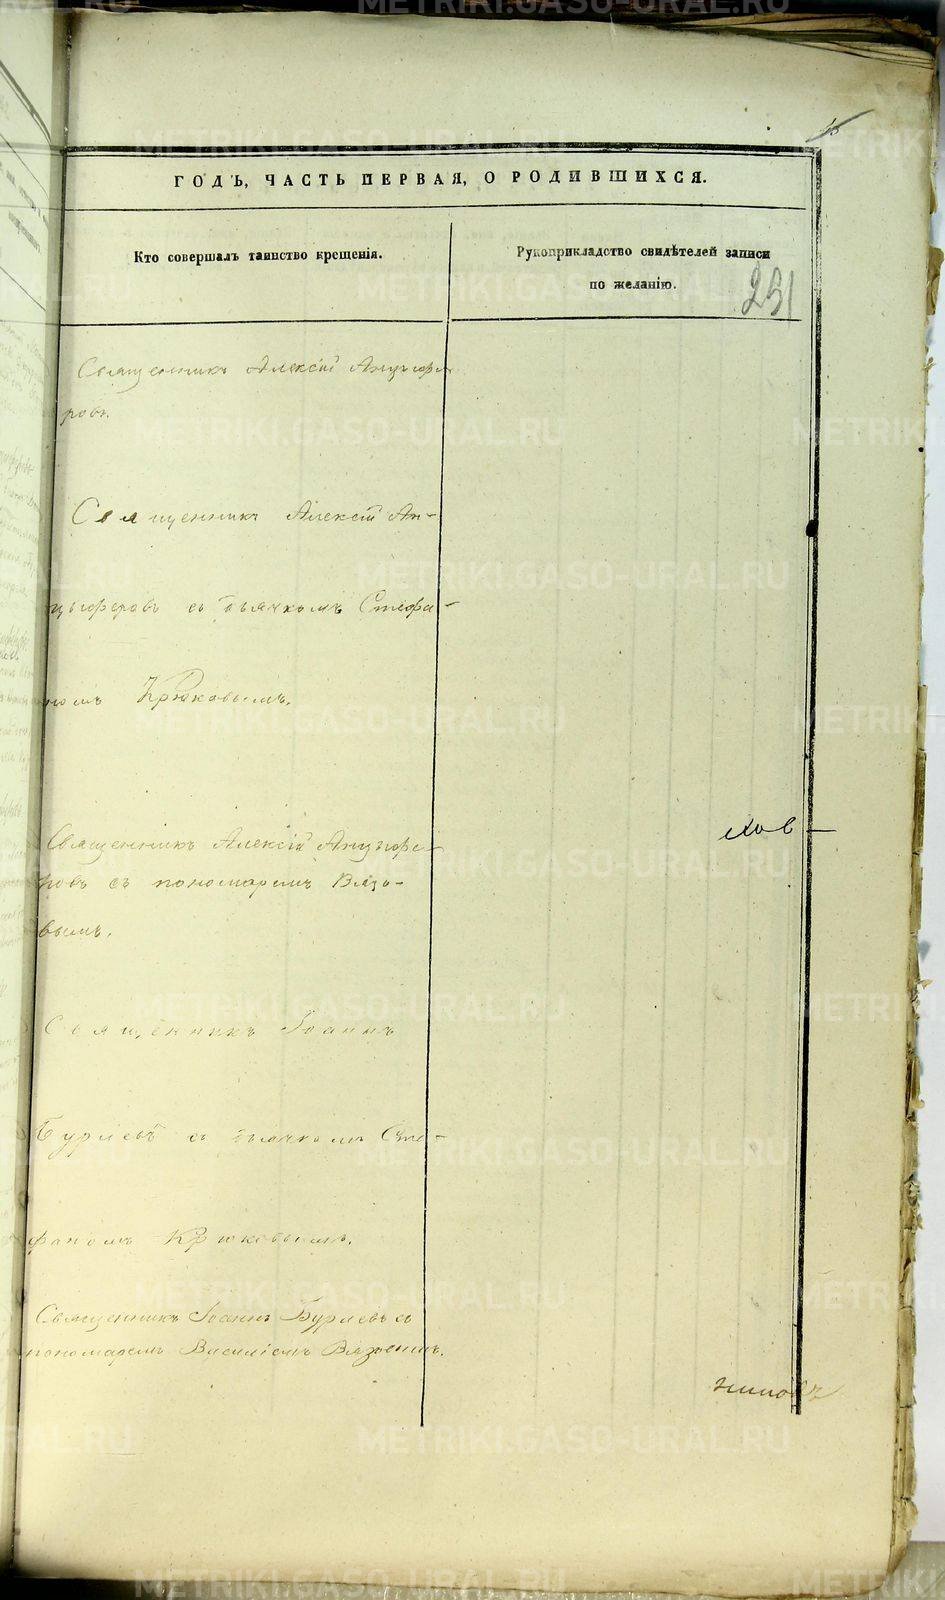 ГОДЪ, ЧАСТЬ ПЕРВАЯ, О РОДИВШИХСЯ.
Кто совершалъ таинство крещенія.
Рукоприкладство свидѣтелей записи
по желанію.
231
Священникъ Алексій Анцыфе-
ровъ.
Священникъ Алексій Ан-
цыферовъ съ дьячкомъ Стефа-
номъ Крюковымъ.
Священникъ Алексій Анцыфе-
ровъ съ пономаремъ Вязо-
вымъ.
хов-
Священникъ Іоаннъ
Бурлевъ съ дьячкомъ Сте-
фаномъ Крюковымъ.
Священникъ Іоаннъ Бурлевъ съ
пономаремъ Василіемъ
METRIKI.GASO-URAL.RU